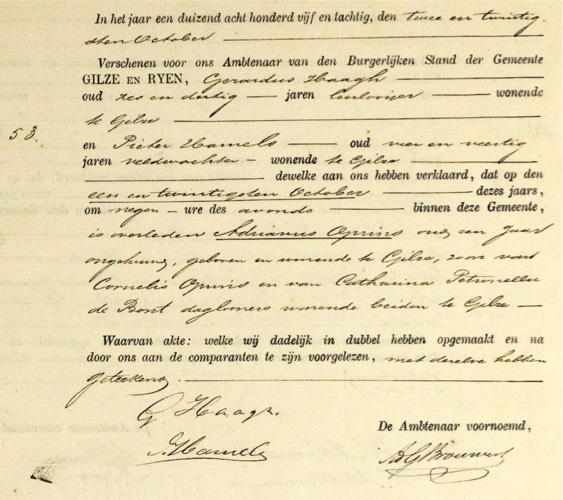 In het jaar een duizend acht honderd vijf en tachtig, den twee en twintig-
sten October
Verschenen voor ons Ambtenaar van den Burgerlijken Stand der Gemeente
GILZE EN RYEN, Gerardus Haagh
oud zes en dertig jaren leerlooijer wonende
te Gilze
53.
en Pieter Hamels oud vier en veertig
jaren veldwachter wonende te Gilze
dewelke aan ons hebben verklaard, dat op den
een en twintigsten October dezes jaars,
om negen ure des avonds binnen deze Gemeente,
is overleden Adrianus Opruins oud een Jaar
ongehuwd, geboren en wonende te Gilze, zoon van
Cornelis Opruins en van Catharina Petronella
de Bont dagloners wonende beiden te Gilze
Waarvan akte: welke wij dadelijk in dubbel hebben opgemaakt en na
door ons aan de comparanten te zijn voorgelezen, met dezelve hebben
geteekend.
G Haagh.
P. Hamels
De Ambtenaar voornoemd,